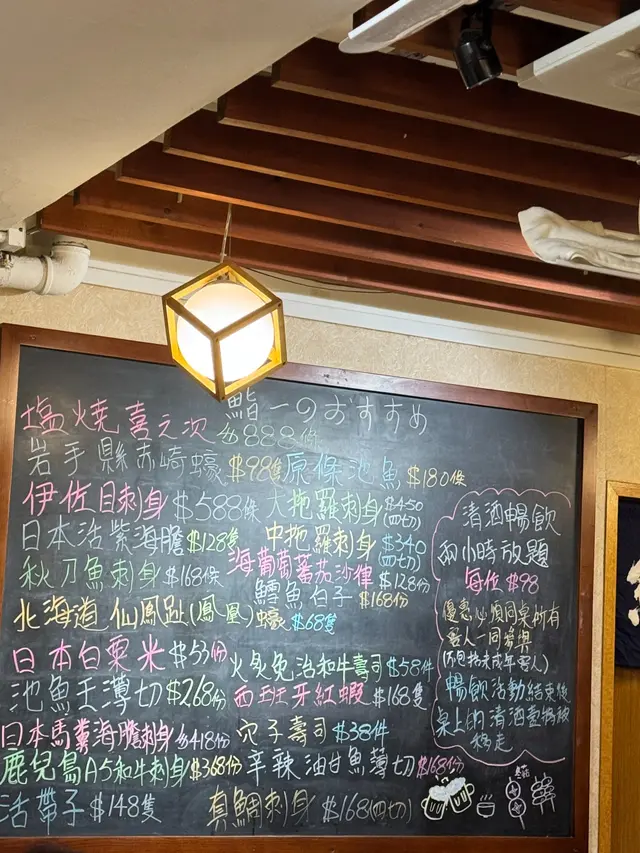 鮨一のおすすめ
塩燒喜之次 $888條
岩手縣赤崎蠔 $98隻 原條池魚 $180條
伊佐目刺身 $588條 大拖羅刺身 $450(四切)
日本活紫海膽 $128隻 中拖羅刺身 $340(四切)
秋刀魚刺身 $168條 海葡萄蕃茄沙律 $128份
鱈魚白子 $168份
北海道仙鳳趾(鳳凰)蠔 $68隻
日本白粟米 $53份 火炙免治和牛壽司 $58件
池魚王薄切 $268份 西班牙紅蝦 $168隻
日本馬糞海膽刺身 $418份 穴子壽司 $38件
鹿兒島A5和牛刺身 $368份 辛辣油甘魚薄切 $168份
活帶子 $148隻 真鯛刺身 $168(四切)
清酒暢飲
兩小時放題
每位 $98
優惠必須同桌所有
客人一同參與
(不包括未成年客人)
暢飲活動結束後
桌上的清酒壺將被
移走